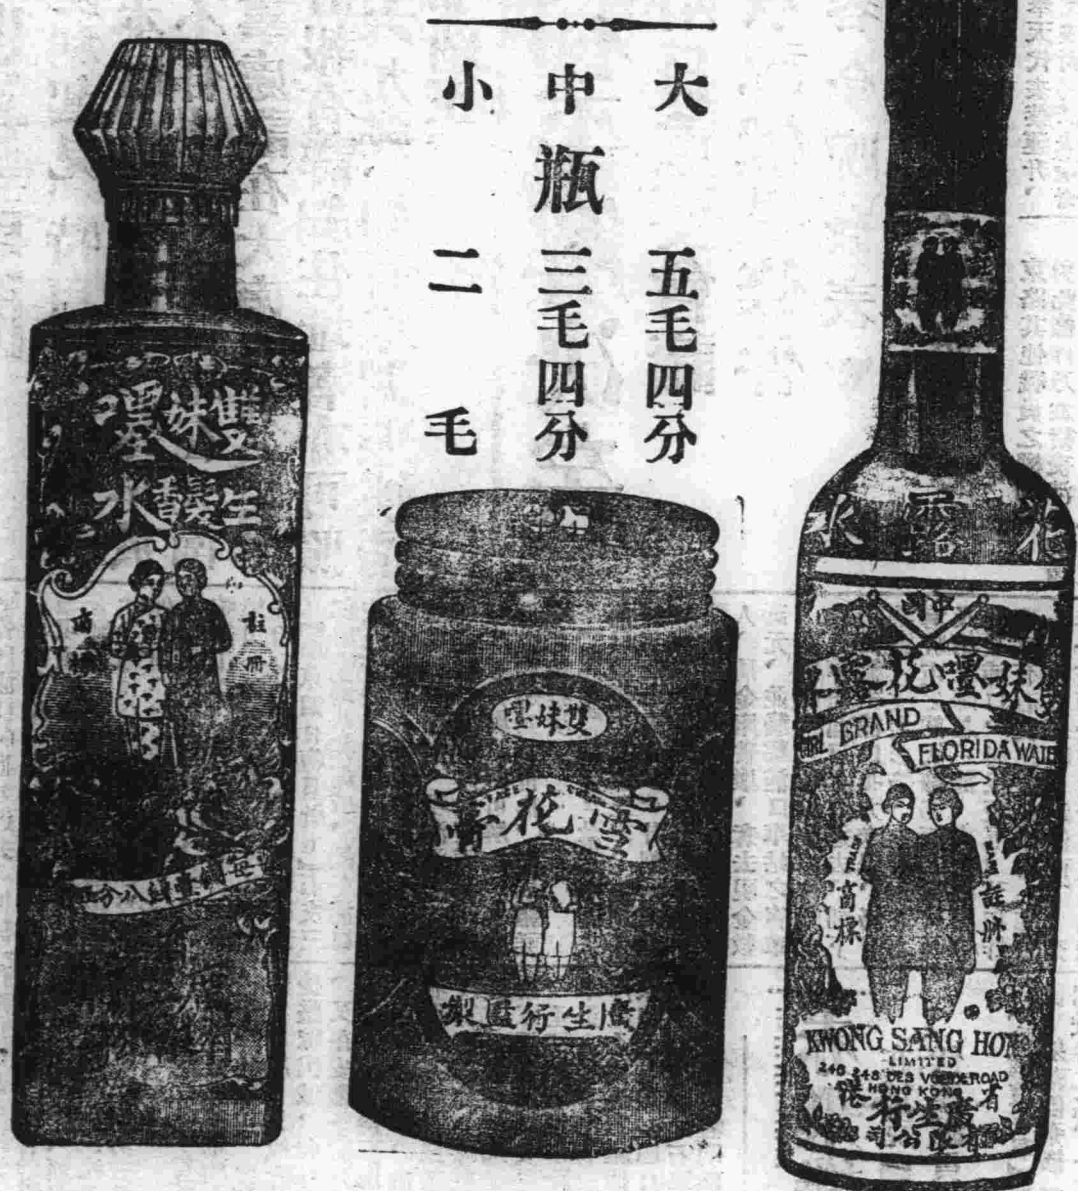 大 中 小
瓶
五毛四分
三毛四分
二毛
雙妹嚜
生髮香水
註冊
商標
雙妹嚜
雪花膏
廣生行監製
花露水
妹嚜花露
GIRL BRAND
FLORIDA WATE
註冊
商標
KWONG SANG HON
LIMITED
246 248 DES VOEUX ROAD
HONG KONG
省港
廣生行
有限公司